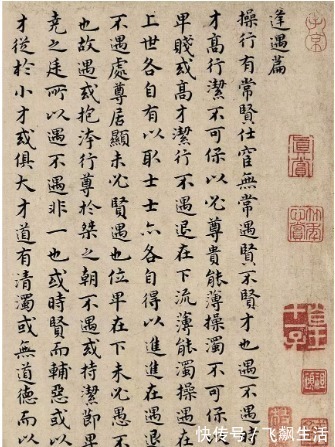 逢遇篇
操行有常賢仕宦無常遇賢不賢才也遇不遇
才高行潔不可保以必尊貴能薄操濁不可保
卑賤或高才潔行不遇退在下流薄能濁操遇
上世各自有以取士士亦各自得以進進在遇退在
不遇處尊居顯未必賢遇也位卑在下未必愚不
也故遇或抱洿行尊於桀之朝不遇或持潔節卑
堯之廷所以遇不遇非一也或時賢而輔惡或以
才從於小才或俱大才道有清濁或無道德而以
子京
真賞
快传号/飞飙生活